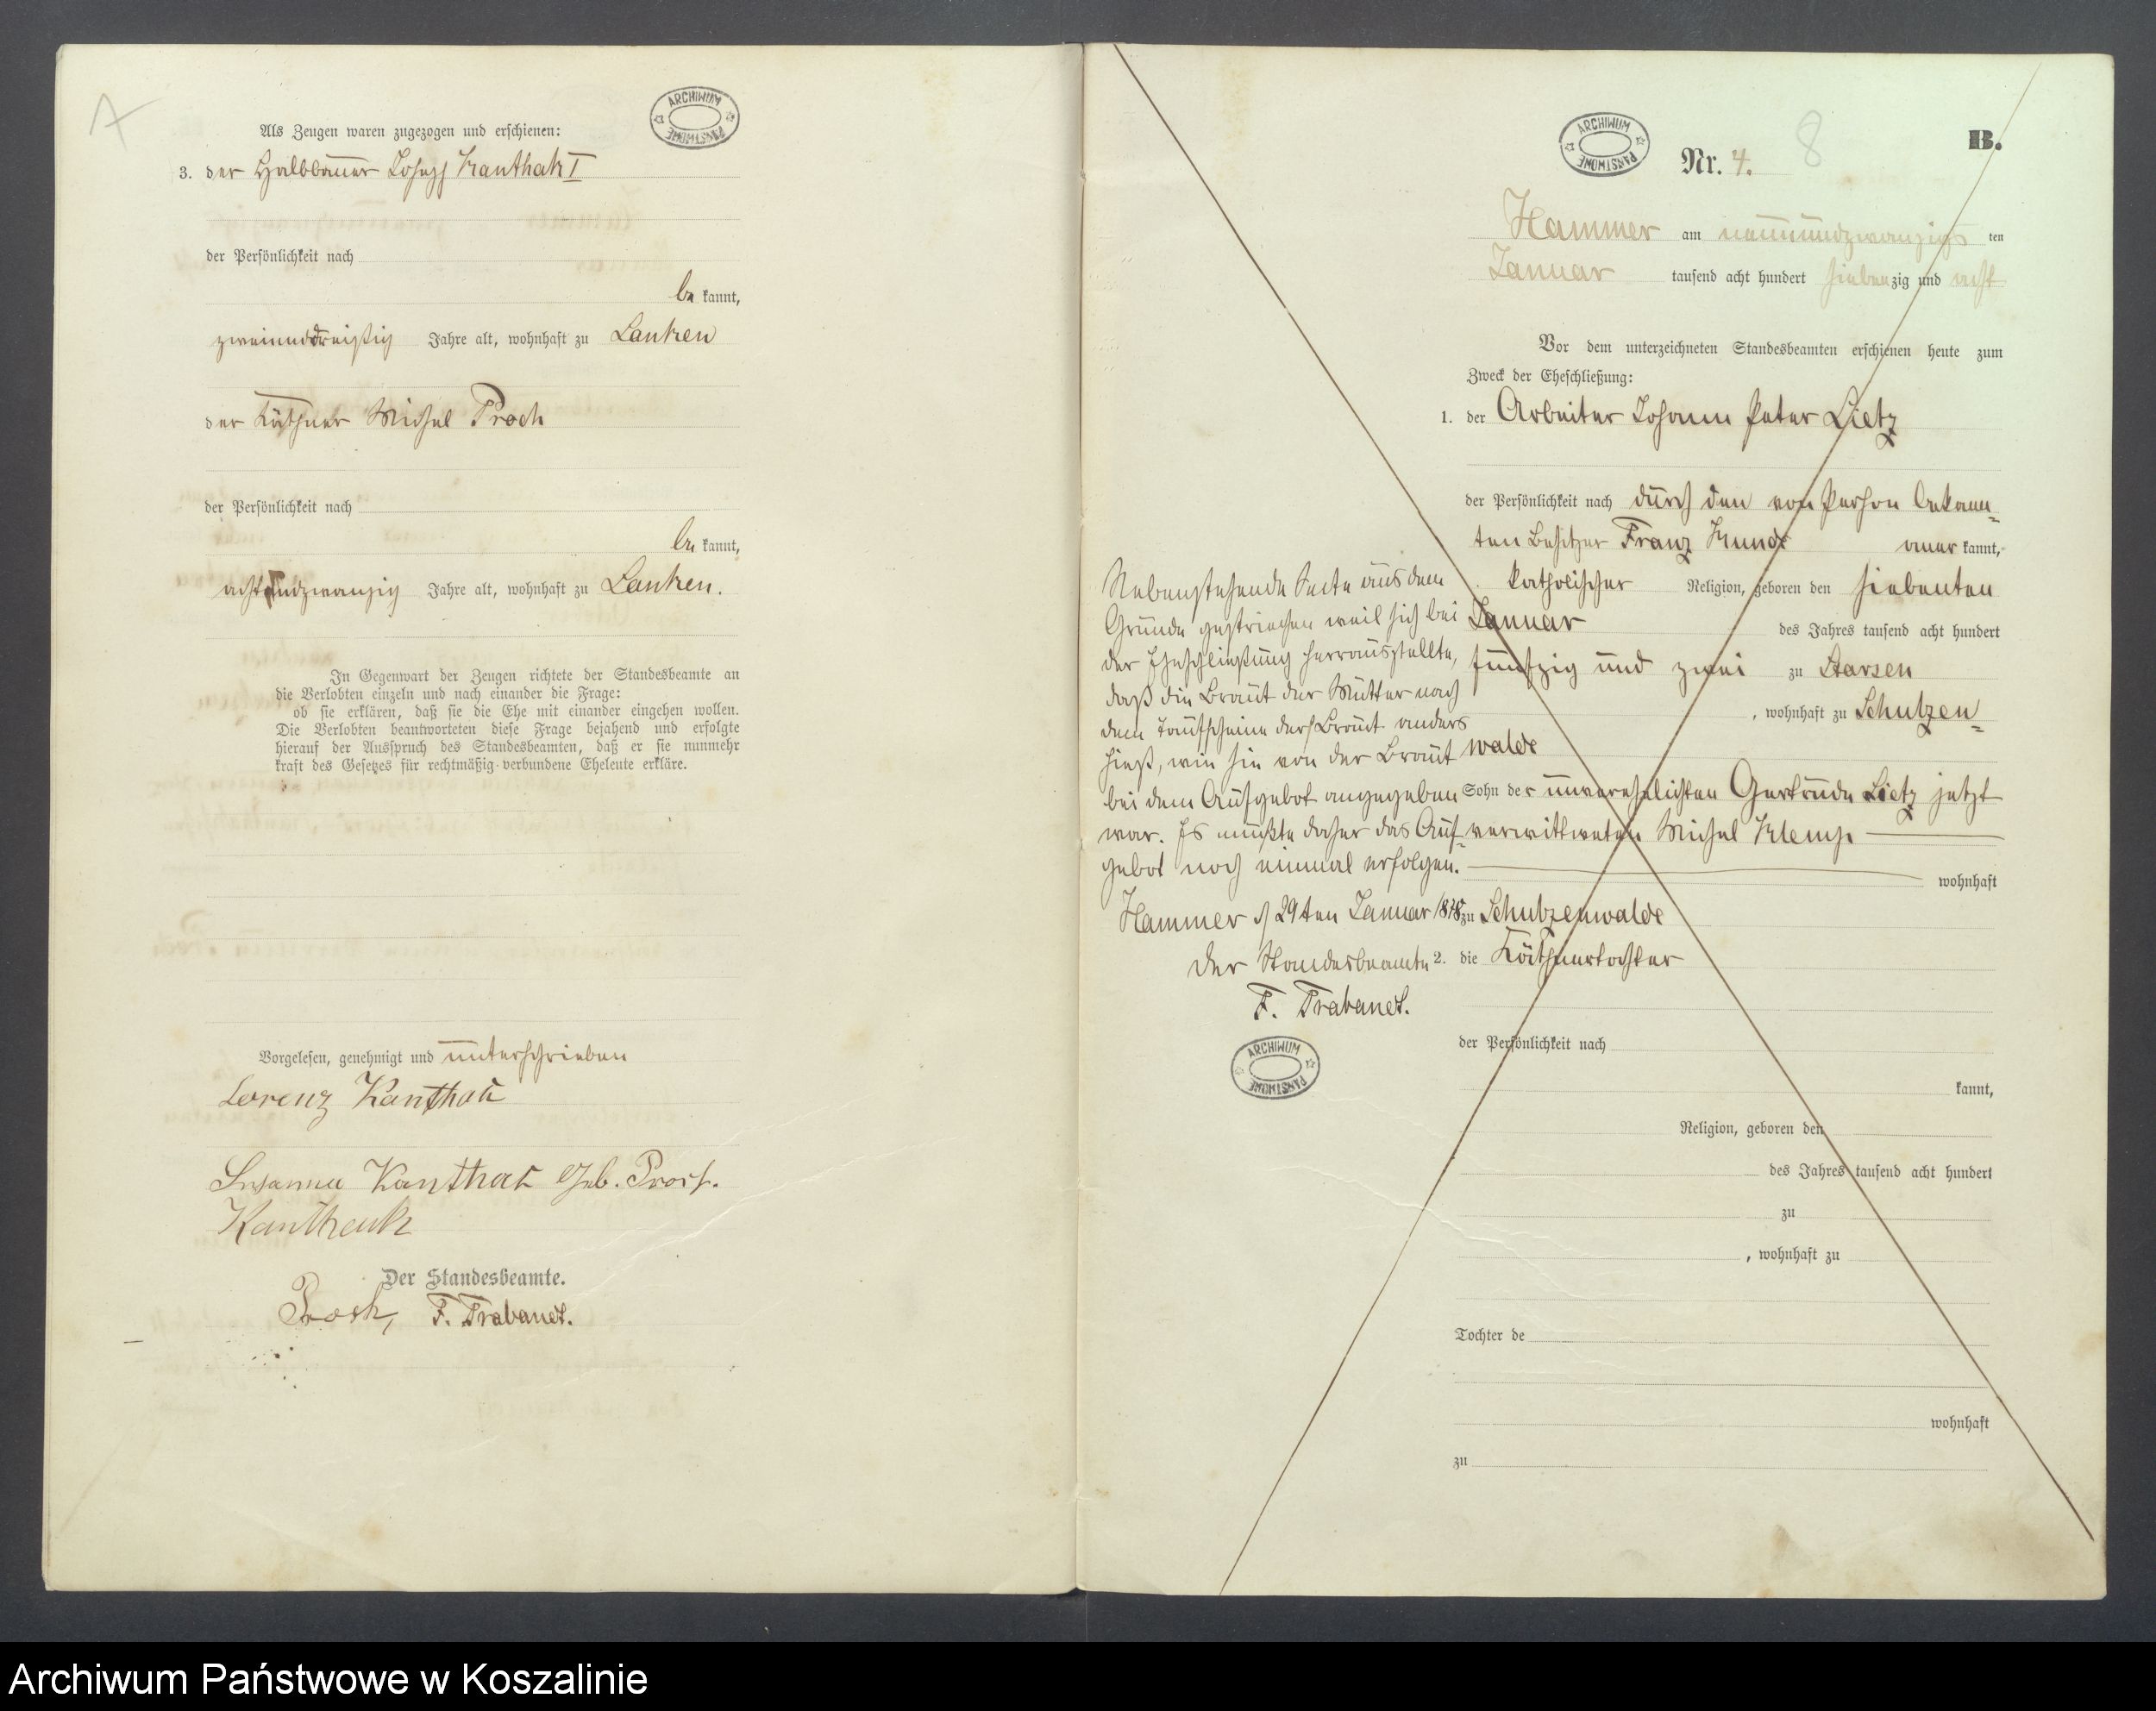 A
ARCHIWUM PAŃSTWOWE
Als Zeugen waren zugezogen und erschienen:
3. der Halbbauer Joseph Kanthak I
der Persönlichkeit nach
be kannt,
zweiunddreißig Jahre alt, wohnhaft zu Lanken
der Käthner Michel Proch
der Persönlichkeit nach
be kannt,
achtundzwanzig Jahre alt, wohnhaft zu Lanken.
In Gegenwart der Zeugen richtete der Standesbeamte an
die Verlobten einzeln und nach einander die Frage:
ob sie erklären, daß sie die Ehe mit einander eingehen wollen.
Die Verlobten beantworteten diese Frage bejahend und erfolgte
hierauf der Ausspruch des Standesbeamten, daß er sie nunmehr
kraft des Gesetzes für rechtmäßig verbundene Eheleute erkläre.
Vorgelesen, genehmigt und unterschrieben
Lorenz Kanthak
Susanna Kanthak geb. Proch.
Kanthak
Der Standesbeamte.
Proch, F. Trabandt.
ARCHIWUM PAŃSTWOWE
8
B.
Nr. 4.
Hammer am neunundzwanzigs ten
Januar tausend acht hundert siebenzig und acht
Vor dem unterzeichneten Standesbeamten erschienen heute zum
Zweck der Eheschließung:
1. der Arbeiter Johann Peter Lietz
der Persönlichkeit nach durch den von Person bekann-
ten Besitzer Franz Kunde aner kannt,
katholischer Religion, geboren den siebenten
Januar des Jahres tausend acht hundert
fünfzig und zwei zu Starsen
, wohnhaft zu Schulzen-
walde
Sohn der unverehelichten Gertrude Lietz jetzt
verwittweten Michel Klemp
wohnhaft
zu Schulzenwalde
2. die Käthnertochter
der Persönlichkeit nach
kannt,
Religion, geboren den
des Jahres tausend acht hundert
zu
, wohnhaft zu
Tochter de
wohnhaft
zu
Nebenstehende Seite aus dem
Grunde gestrichen weil sich bei
der Eheschließung herrausstellte,
daß die Braut der Mutter nach
dem Taufscheine der Braut anders
hieß, wie sie von der Braut
bei dem Aufgebot angegeben
war. Es mußte daher das Auf-
gebot noch einmal erfolgen.
Hammer d 29ten Januar 1878
Der Standesbeamte
F. Trabandt.
ARCHIWUM PAŃSTWOWE
Archiwum Państwowe w Koszalinie